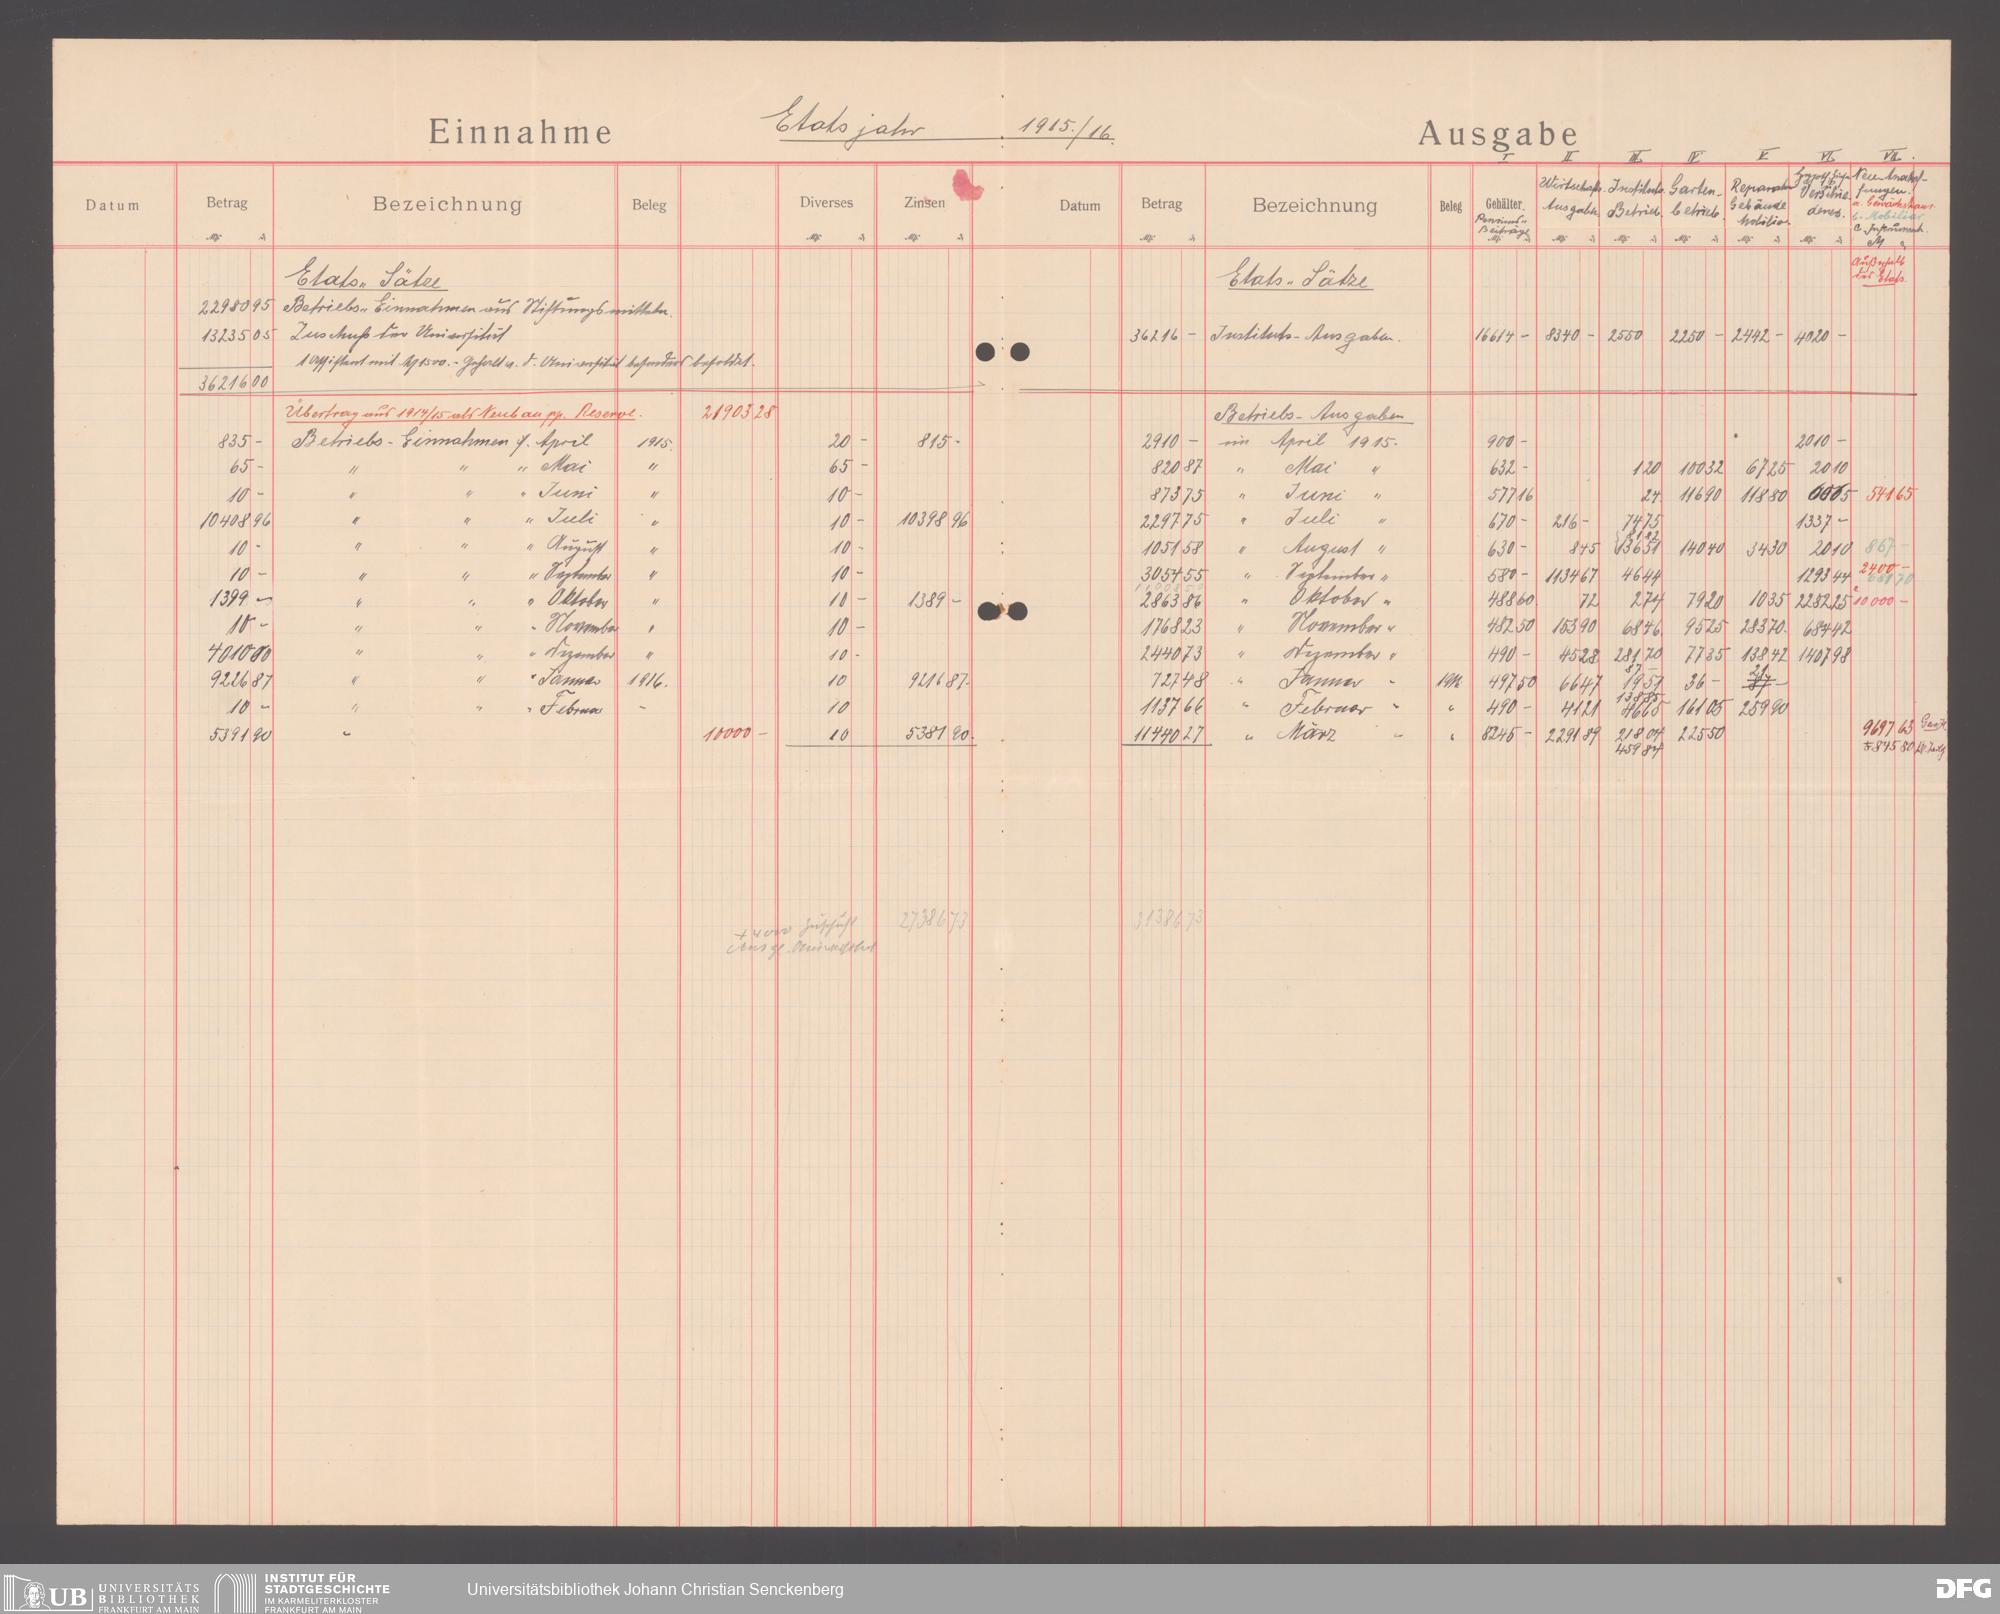 Einnahme Etatsjahr 1915./16. Ausgabe
I II III IV V VI VII.
Datum Betrag Bezeichnung Beleg Diverses Zinsen Datum Betrag Bezeichnung Beleg Gehälter. Pensions- Beiträge Wirtschafts- Ausgaben Instituts- Betrieb. Garten- betrieb. Reparatur Gebäude Mobiliar. Verschie- denes. Neu Anschaf- fungen. a. Gewächshaus b. Mobiliar c. Instrument.
Etats-Sätze Etats-Sätze Außerhalb des Etats.
22980 95 Betriebs-Einnahmen aus Stiftungsmitteln.
13235 05 Zuschuß der Universität 36216 - Instituts-Ausgaben. 16614 - 8340 - 2550 2250 - 2442 - 4020 -
1 Assistent mit M 1500.- Gehalt v. d. Universität besonders besoldet.
36216 00
Übertrag aus 1914/15 als Neubau pp. Reserve. 21903 28 Betriebs-Ausgaben
835 - Betriebs-Einnahmen f. April 1915. 20 - 815 - 2910 - im April 1915. 900 - 2010 -
65 - " " " Mai " 65 - 820 87 " Mai " 632 - 1 20 100 32 67 25 20 10
10 - " " " Juni " 10 - 873 75 " Juni " 577 16 24 116 90 118 80 541 65
10408 96 " " " Juli " 10 - 10398 96 2297 75 " Juli " 670 - 216 - 74 75 1337 -
10 - " " " August " 10 - 1051 58 " August " 630 - 8 45 136 51 140 40 34 30 20 10 867 -
10 - " " " September " 10 - 3054 55 " September " 580 - 1134 67 46 44 1293 44 2400 -
1399 - " " " Oktober " 10 - 1389 - 2863 86 " Oktober " 488 60 72 2 74 79 20 10 35 2282 25 10000 -
10 - " " " November " 10 - 1768 23 " November " 482 50 153 90 68 46 95 25 283 70 684 42
4010 00 " " " Dezember " 10 - 2440 73 " Dezember " 490 - 45 28 281 70 77 35 138 42 1407 98
9226 87 " " " Januar 1916. 10 9216 87 727 48 " Januar " 1916 497 50 66 47 19 51 36 -
10 - " " " Februar " 10 1137 66 " Februar " " 490 - 41 21 46 65 161 05 259 90
5391 90 " 10000 - 10 5381 90 11440 27 " März " " 8245 - 2291 89 218 04 225 50 9697 63
459 84 5845 80
+ 4000 Zuschuß 27386 73 31386 73
UB UNIVERSITÄTS BIBLIOTHEK FRANKFURT AM MAIN
INSTITUT FÜR STADTGESCHICHTE IM KARMELITERKLOSTER FRANKFURT AM MAIN
Universitätsbibliothek Johann Christian Senckenberg
DFG